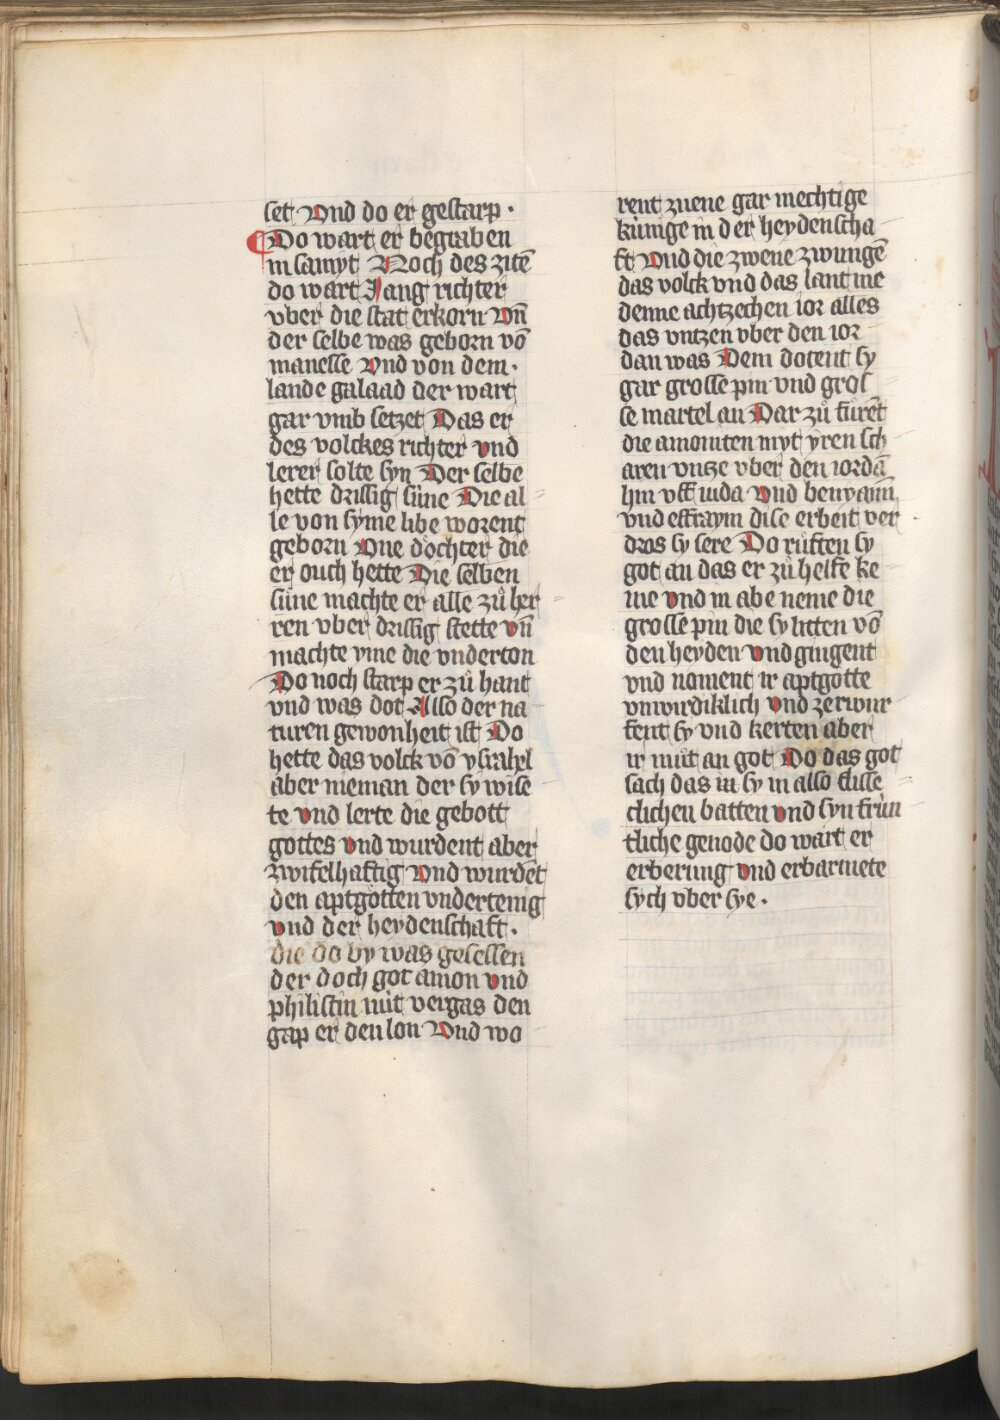 set Vnd do er gestarp ·
Do wart er begraben
in samyt Noch des zitē
do wart Jang richter
vber die stat erkorn Vn̄
der selbe was geborn vō
manesse Vnd von dem ·
lande galaad der wart
gar vmb setzet Das er
des volckes richter vnd
lerer solte syn Der selbe
hette drissig süne Die al
le von syme libe worent
geborn One döchter die
er ouch hette Die selben
süne machte er alle zů her
ren vber drissig stette vn̄
machte yme die vnderton
Do noch starp er zů hant
vnd was dot Also der na
turen gewonheit ist Do
hette das volck vō ysrahel
aber nieman der sy wise
te vnd lerte die gebott
gottes vnd wurdent aber
zwifelhaftig Vnd wurdēt
den aptgötten vndertenig
vnd der heydenschaft ·
die do by was gesessen
der doch got amon vnd
philistin nüt vergas den
gap er den lon Vnd wo
rent zuene gar mechtige
künige in der heydenscha
ft Vnd die zwene zwungē
das volck vnd das lant me
denne achtzechen ior alles
das vntzen vber den ior
dan was Dem dotent sy
gar grosse pin vnd gros
se martel an Dar zů fürēt
die amoniten myt yren sch
aren vntze vber den iordā
hin vff iuda Vnd benyamī
vnd effraym dise erbeit ver
dros sy sere Do rüften sy
got an das er zů helfe ke
me vnd in abe neme die
grosse pin die sy litten vō
den heyden vnd gingent
vnd noment ir aptgötte
vnwirdiklich vnd zerwur
fent sy vnd kerten aber
ir můt an got Do das got
sach das in sy in also flisse
clichen batten vnd syn frün
tliche genode do wart er
erberung vnd erbarmete
sych vber sye ·